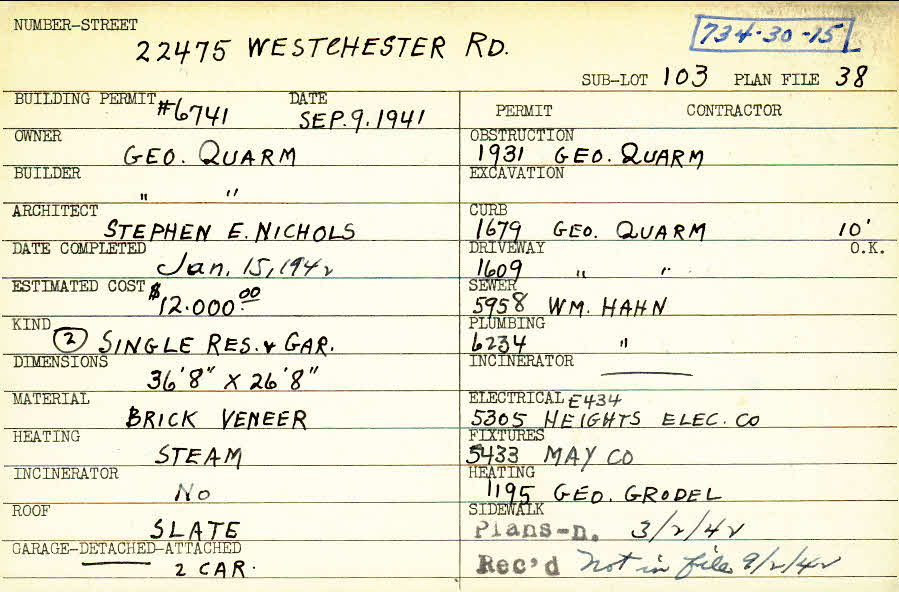 NUMBER-STREET
22475 WESTCHESTER RD.
734-30-15
SUB-LOT 103 PLAN FILE 38
BUILDING PERMIT #6741 DATE SEP. 9. 1941
OWNER GEO. QUARM
BUILDER " "
ARCHITECT STEPHEN E. NICHOLS
DATE COMPLETED Jan. 15, 1942
ESTIMATED COST $12.000.00
KIND (2) SINGLE RES. & GAR.
DIMENSIONS 36'8" X 26'8"
MATERIAL BRICK VENEER
HEATING STEAM
INCINERATOR No
ROOF SLATE
GARAGE-DETACHED-ATTACHED
2 CAR.
PERMIT CONTRACTOR
OBSTRUCTION
1931 GEO. QUARM
EXCAVATION
CURB
1679 GEO. QUARM 10'
DRIVEWAY O.K.
1609 " "
SEWER
5958 WM. HAHN
PLUMBING
6234 "
INCINERATOR
ELECTRICAL E434
5305 HEIGHTS ELEC. CO
FIXTURES
5433 MAY CO
HEATING
1195 GEO. GRODEL
SIDEWALK
Plans-n. 3/2/42
Rec'd Not in file 9/2/42